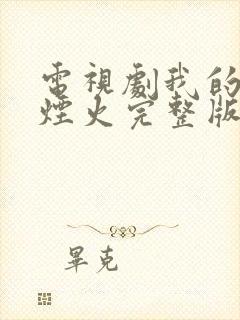 電視劇我的
煙火完整版
畢克